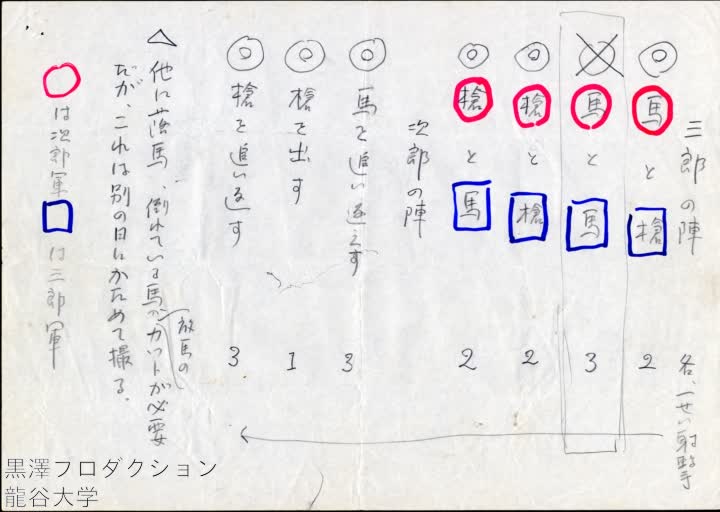 三郎の陣
各、一せい射撃
◎ 馬と槍 2
◎ 馬と馬 3
◎ 槍と槍 2
◎ 槍と馬 2
次郎の陣
◎ 馬を追い返えす 3
◎ 槍を出す 1
◎ 槍を追い返す 3
△ 他に落馬、倒れている馬、放馬のカットが必要
だが、これは別の日にかためて撮る。
○は次郎軍 □は三郎軍
黒澤プロダクション
龍谷大学